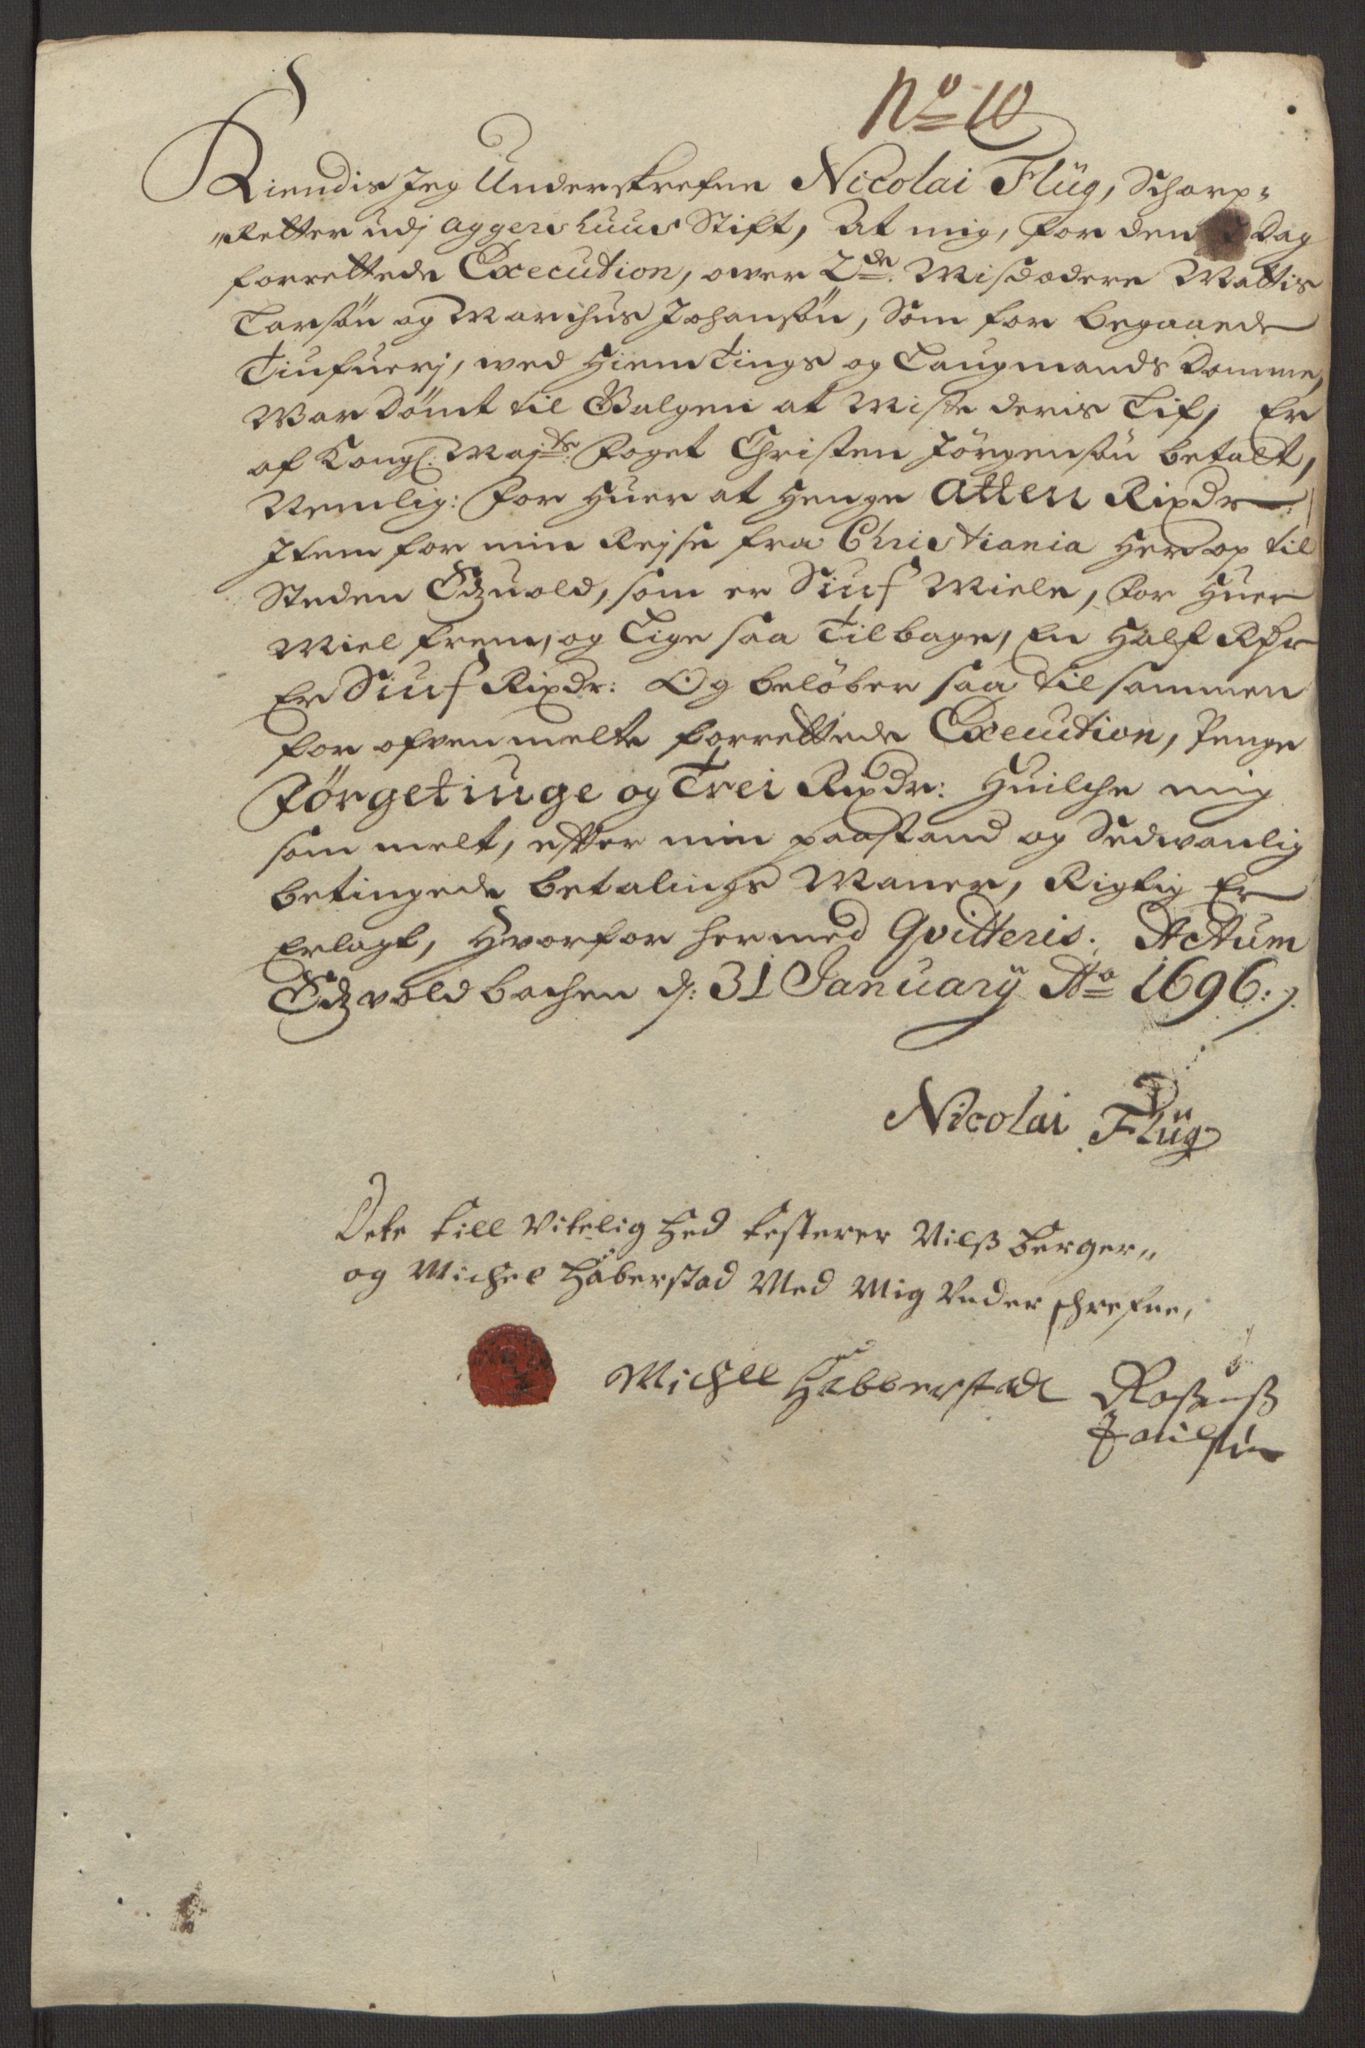 No 10
Kiendis Jeg Underskrefne Nicolai Flüg, Scharp-
Retter udj Aggers huus Stift, At mig, for den Dag
forrettede Execution, over 2de Misdædere Mattis
Larsøn og Marchus Johansøn, Som for begaaede
Tiufuerj, wed Hiemtings og Laugmands Domme,
War Dømt til Galgen at Miste deris Lif, Er
af Kongl. Majts: Foget Christen Jørgensøn betalt,
Nemlig: For Huer at Henge Atten Rixdr:
Item for min Rejse fra Christiania Her op til
Steden Edzuold, som er Siuf Miele, for Huer
Miel frem, og Lige saa Tilbage, En Half Rdr
Er Siuf Rixdr: Og beløber saa til sammen
for ofvenmelte forrettede Execution, Penge
Førgetiuge og Trei Rixdr: Huilche mig
som melt, efter min paastand og Sedwanlig
betingede betalings Maner, Rigtig Er
Erlagt, Hworfor hermed Qvitteris. Actum
Edzvold bachen d: 31 January Ao 1696:
Nicolai Flüg
Dete till Vitelig hed testerer Nilß berger
og Michel Haberstad Med Mig Underschrefne,
Michell Habberstadt Rasmuß
Pouelsøn